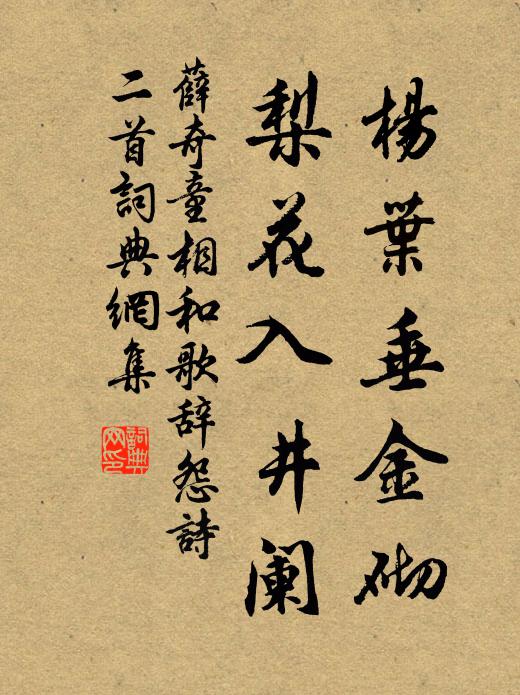 楊葉垂金砌
梨花入井闌
薛奇童相和歌辞怨詩
二首詞典網集
詞典
网印